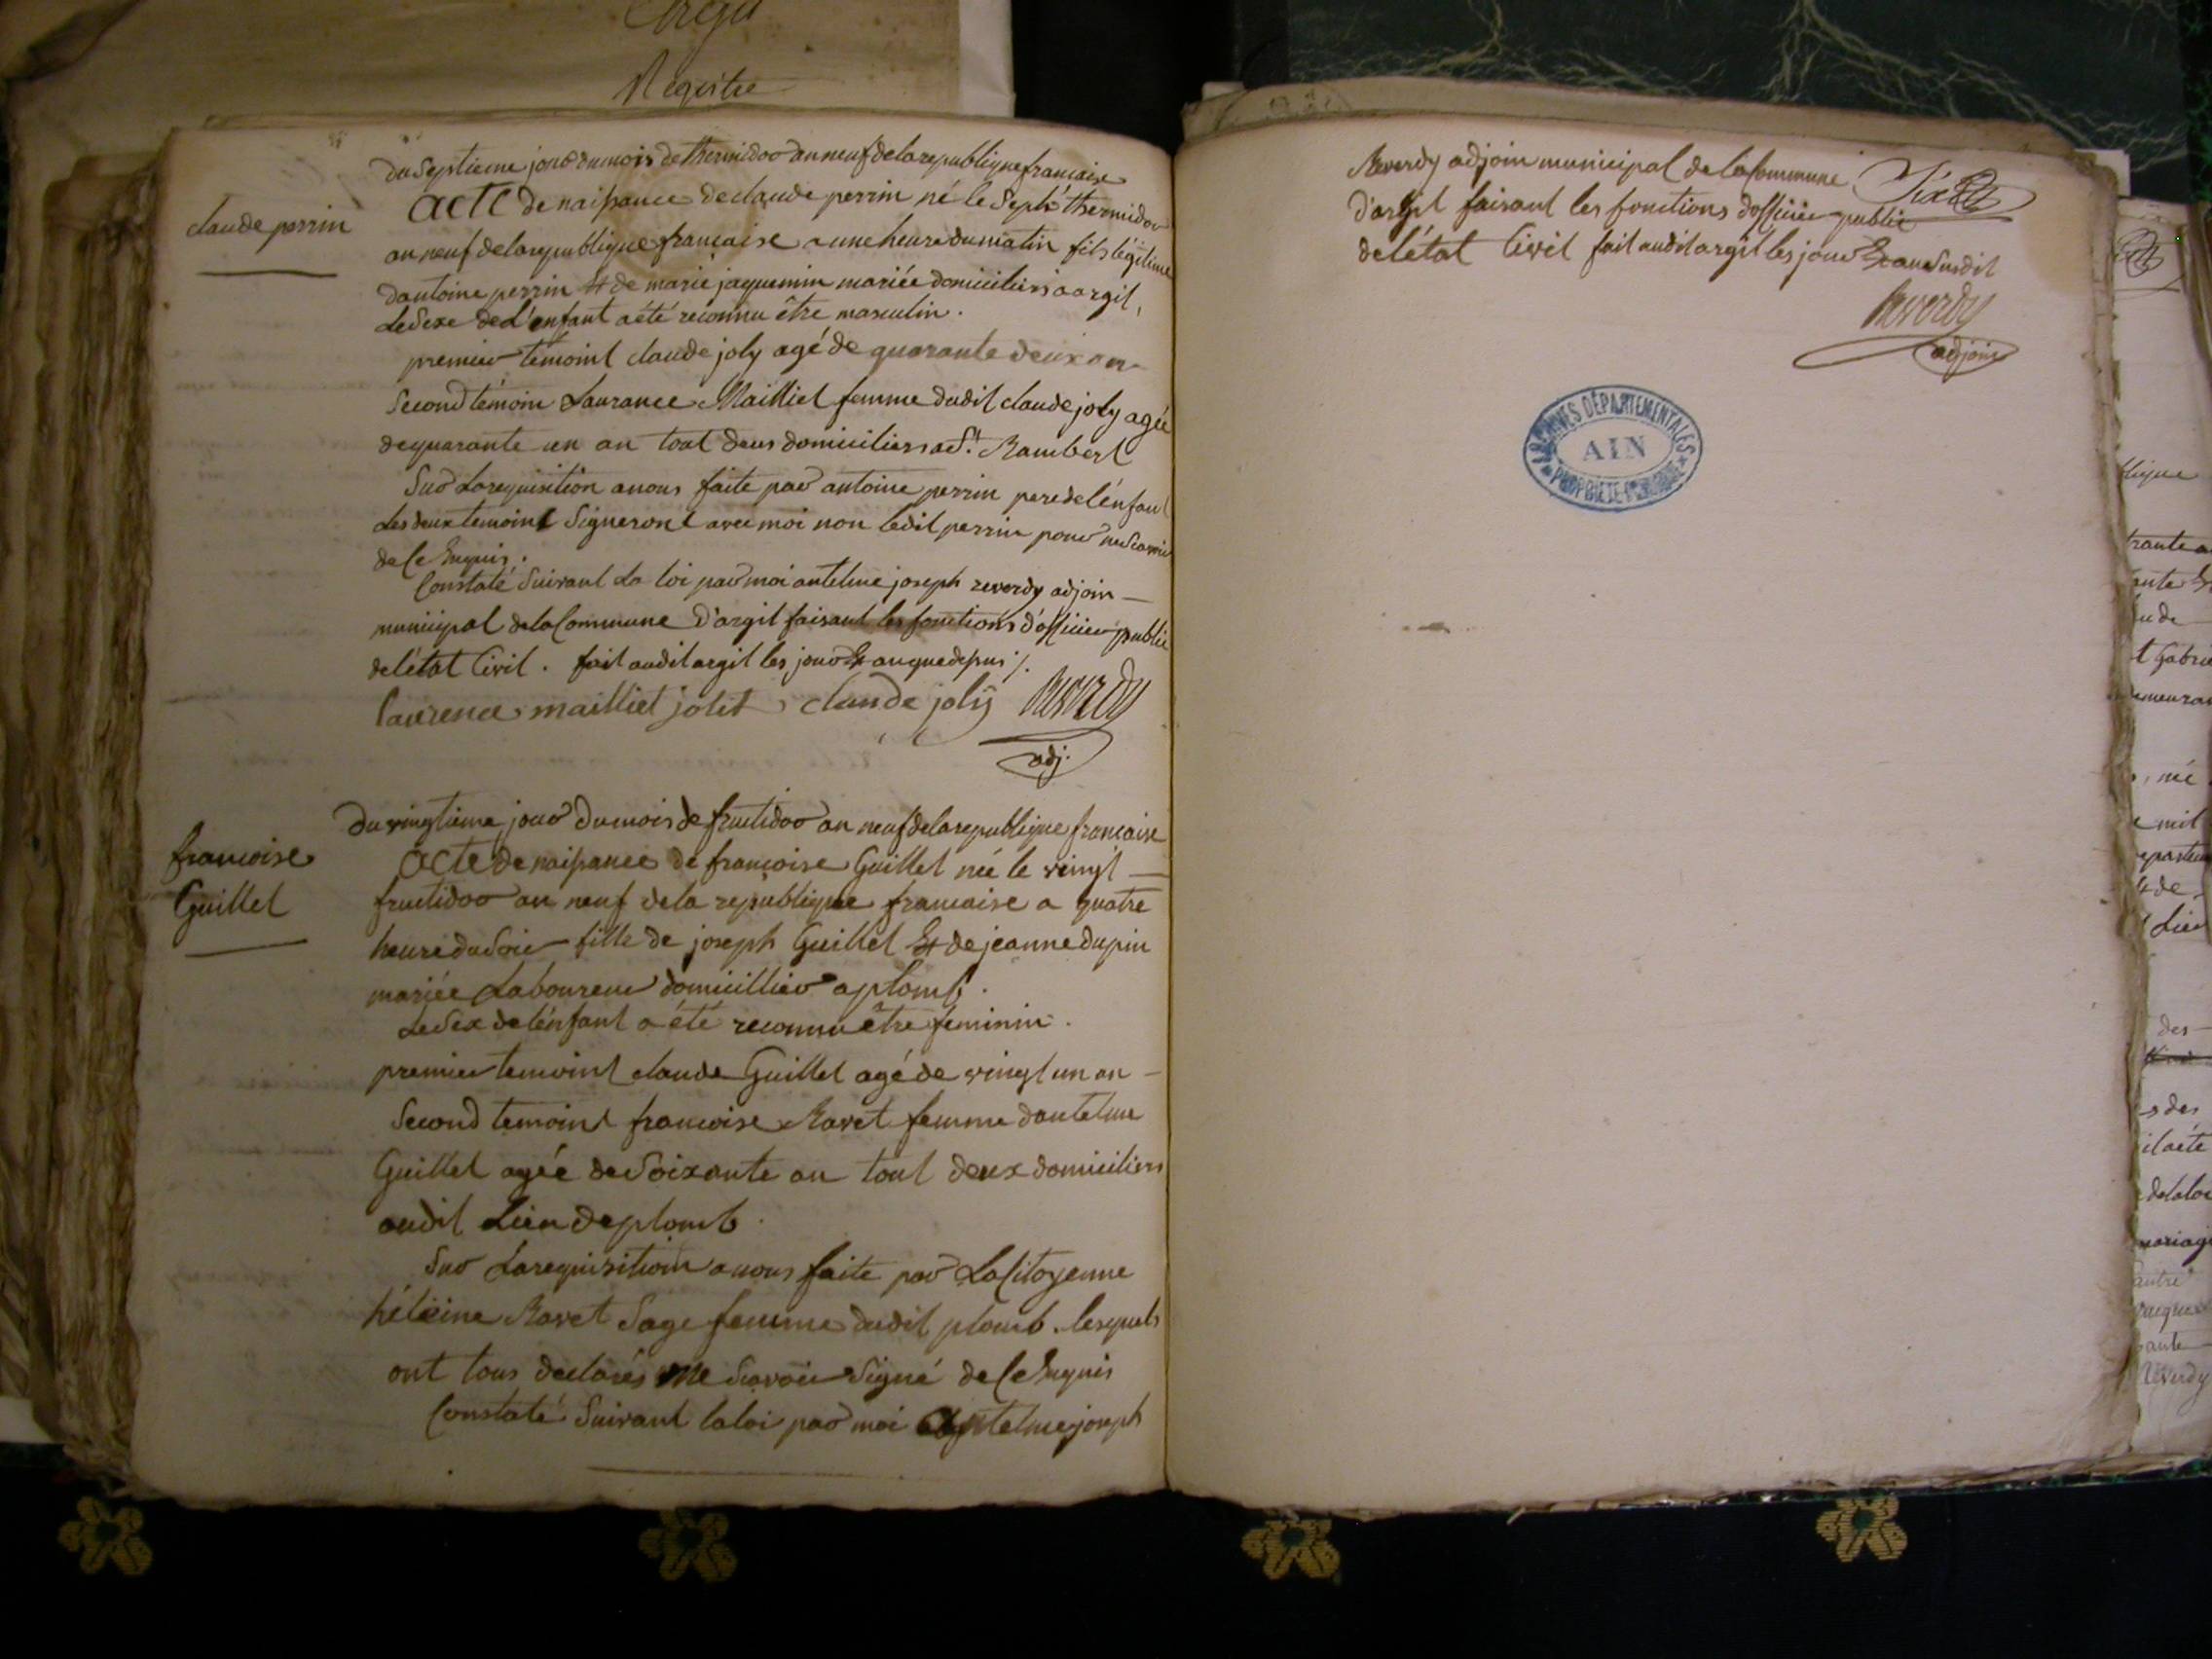 Registre
du septieme jour du mois de thermidor an neuf de la republique francaise
claude perrin
acte de naissance de claude perrin né le sept thermidor
an neuf de la republique francaise a une heure du matin fils légitime
dantoine perrin et de marie jaquemin mariée domiciliers a argil,
Le sexe de L'enfant a été reconnu être masculin.
premier témoint claude joly agé de quarante deux an
Second témoin Laurance Mailliet femme dudit claude joly agée
de quarante un an tout deus domiciliers a St. Rambert
Sur La requisition a nous faite par antoine perrin pere de lénfant
Les deux temoint Signeront avec moi non ledit perrin pour ne Scavoir
de ce Enquis.
Constaté Suivant La loi par moi antelme joseph reverdy adjoin
municipal de la Commune D'argil faisant les fonctions d'officier public
de létat Civil. fait audit argil les jour Et an que depus /.
laurence mailliet jolit claude jolÿ Reverdy
adj.
du vingtieme jour du mois de fructidor an neuf de la republique francaise
francoise
Guillet
acte de naissance de francoise Guillet née le vingt
fructidor an neuf de la republique francaise a quatre
heure du Soir fille de joseph Guillet Et de jeanne dupin
mariée Laboureur domicillier a plomb.
Le Sex de lénfant a été reconnu être feminin.
premier temoint claude Guillet agé de vingt un an
Second temoint francoise Ravet femme dantelme
Guillet agée de Soixante an tout deux domiciliers
audit Lieu de plomb.
Sur La requisition a nous faite par La Citoyenne
héleine Ravet Sage femme dudit plomb. lesquels
ont tous declarés ne Scavoir Signé de ce Enquis
Constaté Suivant la loi par moi antelme joseph
Reverdy adjoin municipal de la Commune
D'argil faisant les fonctions dofficier public
de létat Civil fait audit argil les jour Et an Susdit
Reverdy
adjoin
ARCHIVES DÉPARTEMENTALES
AIN
PROPRIÉTÉ PUBLIQUE